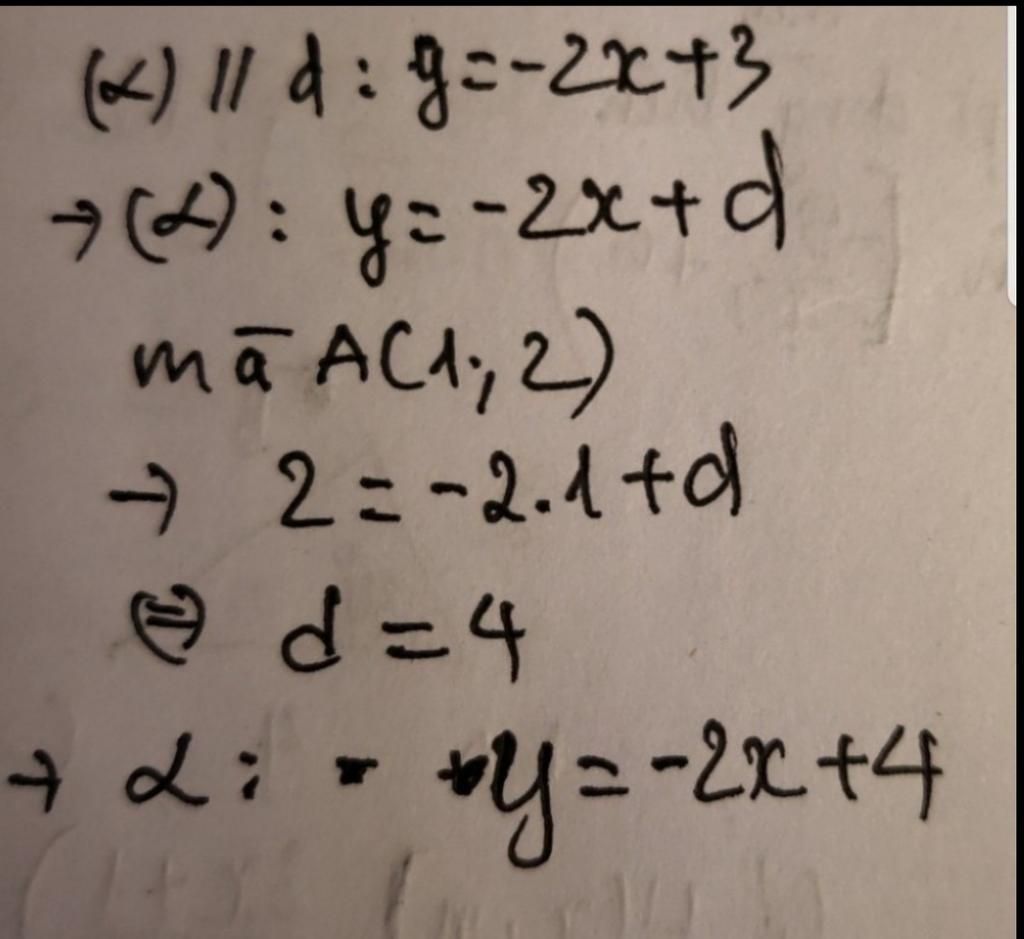 (α) // d : y = -2x + 3
→ (α) : y = -2x + d
mā A(1; 2)
→ 2 = -2.1 + d
⇔ d = 4
→ α : - y = -2x + 4